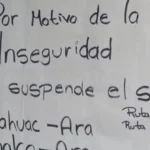 Por Motivo de la
Inseguridad
suspende el s
Ruta
ahuac - Ara
Ruta